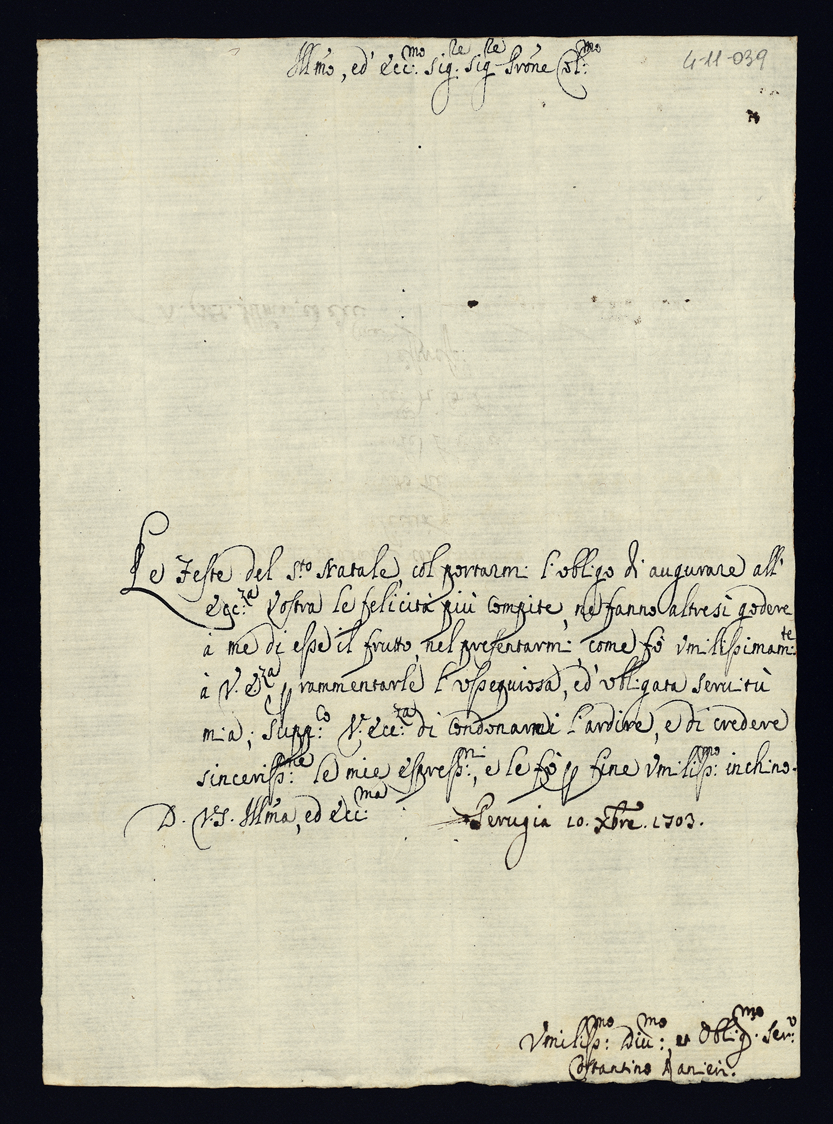 Ill̃mo, ed' Ecc:mo Sig:re Sig:re Prõne Col:mo
4-11-039
Le Feste del S.to Natale, col portarmi l'obligo di augurare all'
Ecc:za Vostra le felicità più compite, ne fanno altresì godere
à me di esse il frutto, nel presentarmi come fò Vmilissimam:te
à V. E:za p rammentarle l'ossequiosa, ed' obligata seruitù
mia; supp:co V. Ecc:za di condonarmi l'ardire, e di credere
sinceriss:ne le mie espress:ni, e le fò p fine Vmiliss:mo inchino.
D. V.S. Ill̃ma, ed Ecc:ma
Perugia 10. Xbre. 1703.
Vmiliss:mo Diu:mo, et Oblig:mo Ser:o
Costantino Ranieri.